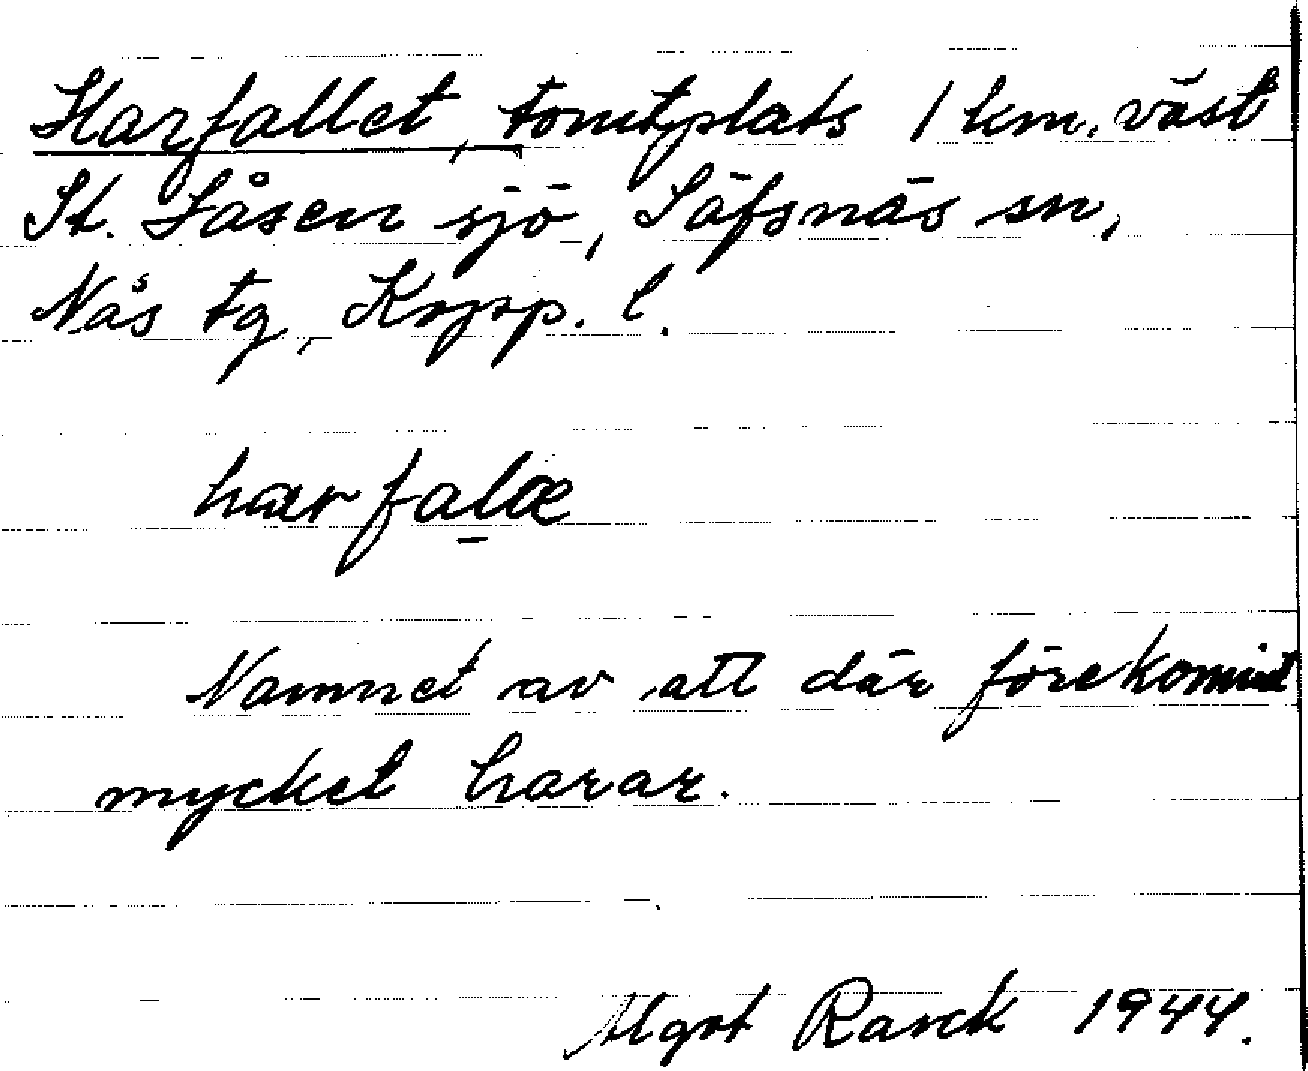 Harfallet, tomtplats 1 km. väst
St. Låsen sjö, Säfsnäs sn,
Nås tg, Kopp. l.
harfalæ
Namnet av att där förekommit
mycket harar.
Algot Rarck 1944.